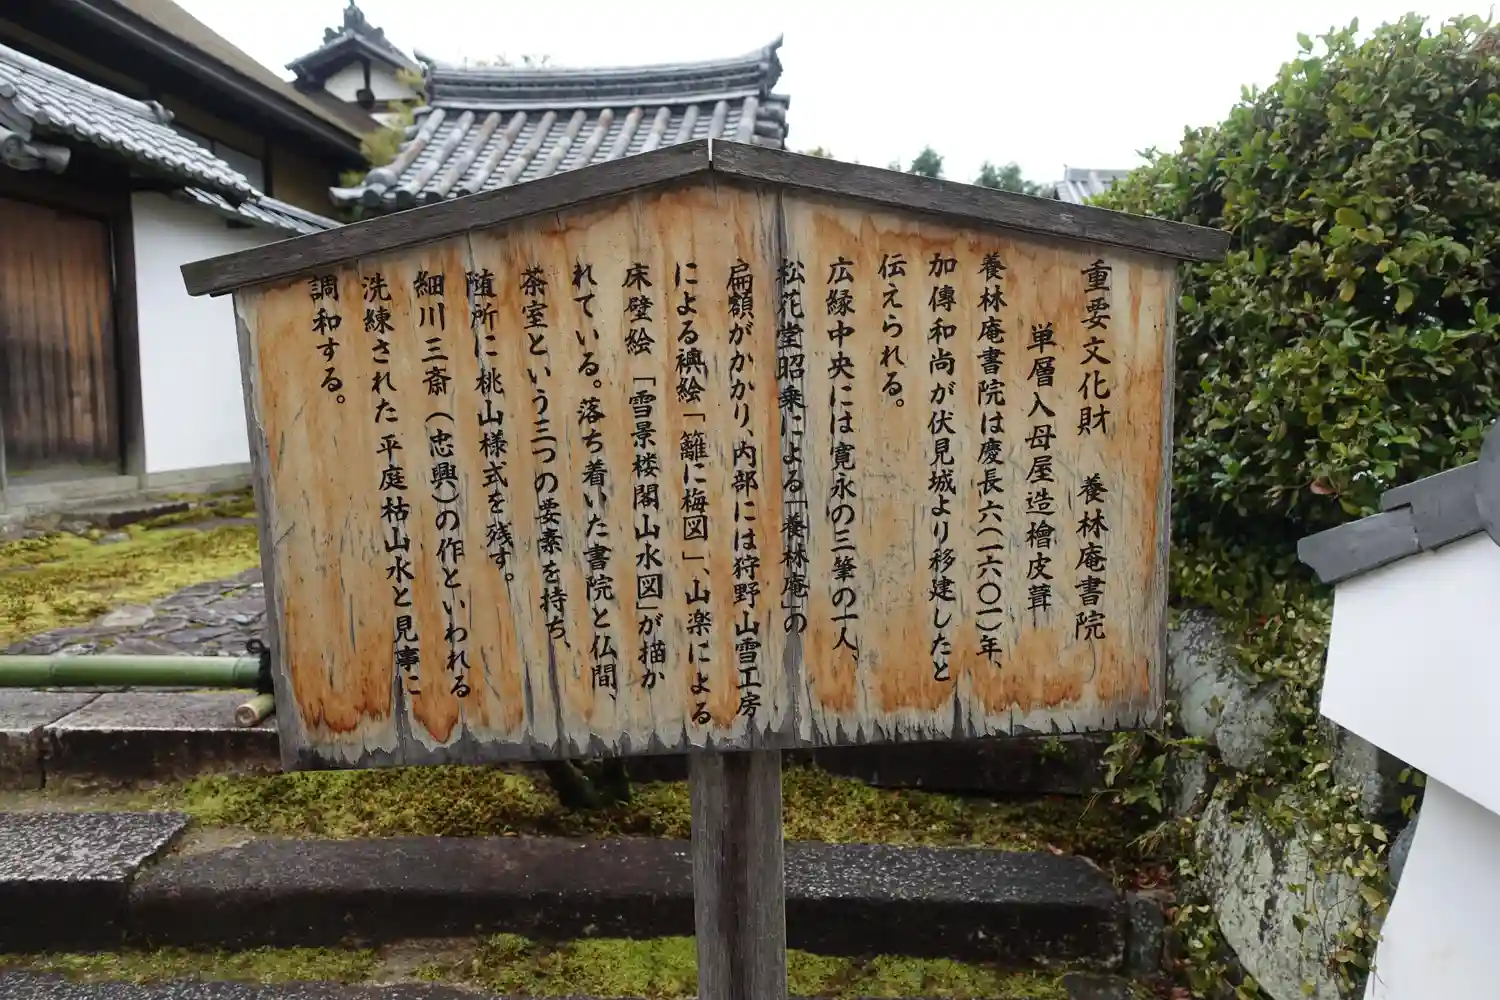 重要文化財 養林庵書院
単層入母屋造檜皮葺
養林庵書院は慶長六(一六〇一)年、
加傳和尚が伏見城より移建したと
伝えられる。
広縁中央には寛永の三筆の一人、
松花堂昭乗による「養林庵」の
扁額がかかり、内部には狩野山雪工房
による襖絵「籬に梅図」、山楽による
床壁絵「雪景楼閣山水図」が描か
れている。落ち着いた書院と仏間、
茶室という三つの要素を持ち、
随所に桃山様式を残す。
細川三斎(忠興)の作といわれる
洗練された平庭枯山水と見事に
調和する。